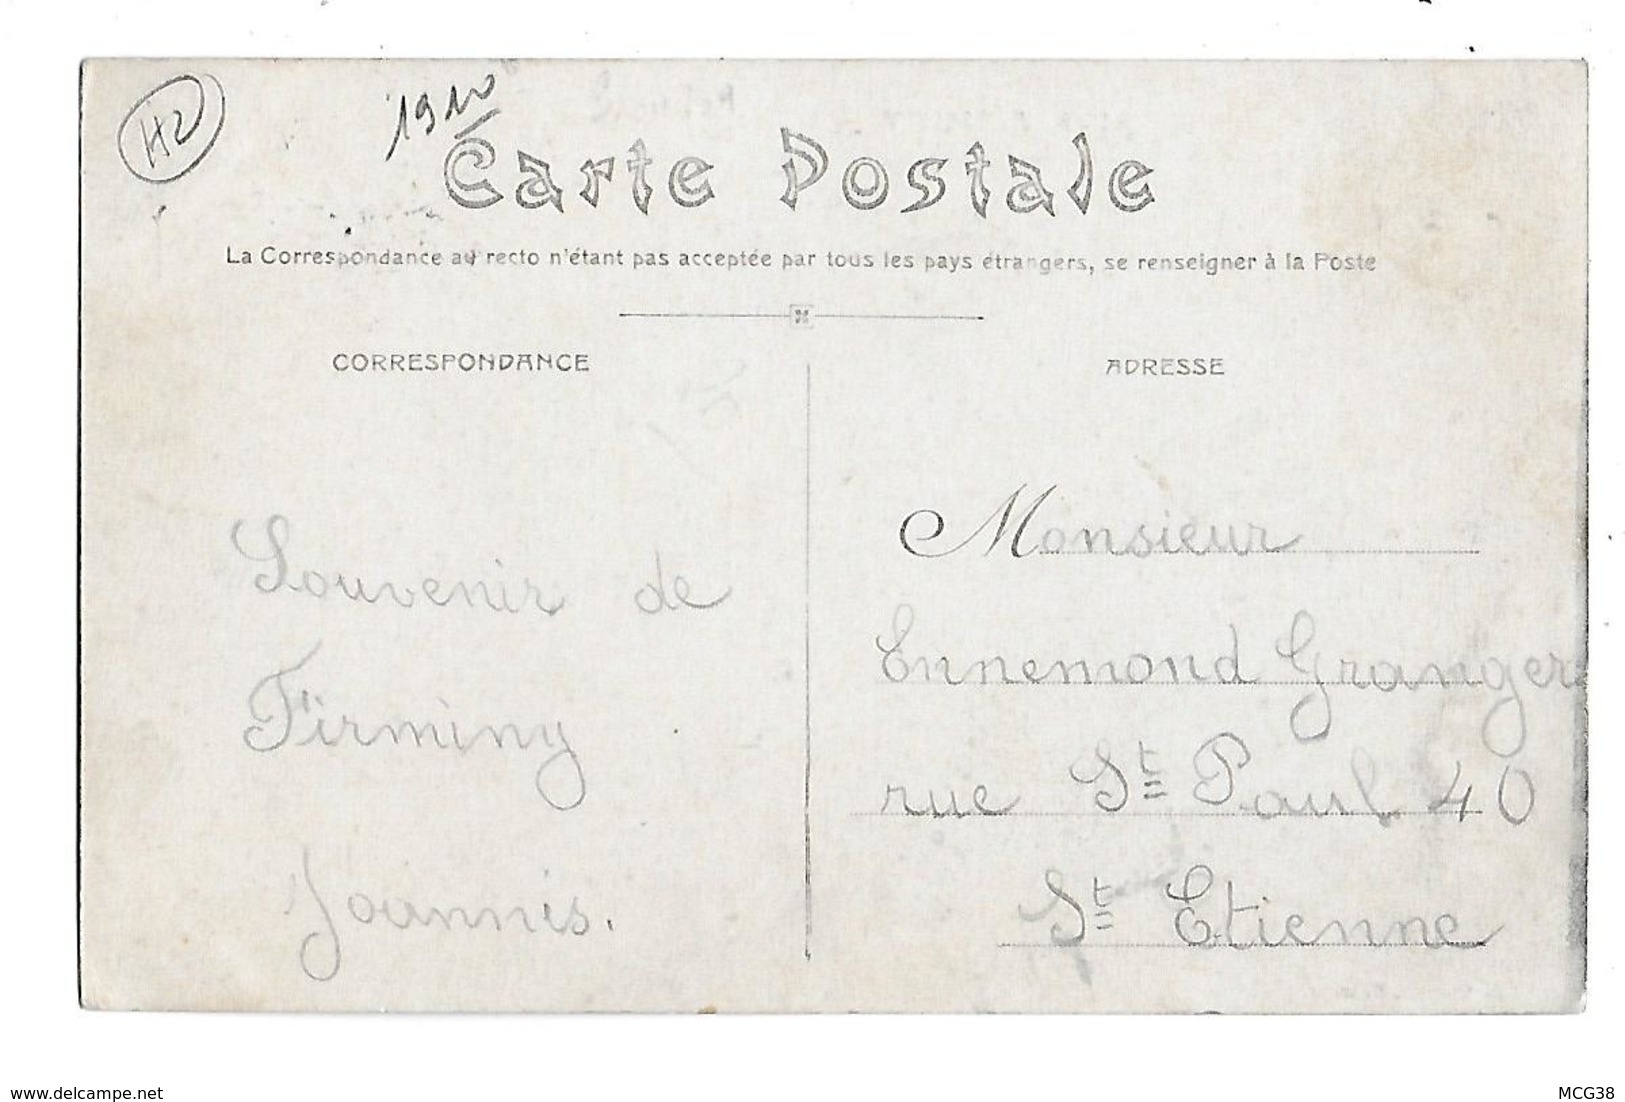 H2
1910
Carte Postale
La Correspondance au recto n'étant pas acceptée par tous les pays étrangers, se renseigner à la Poste
CORRESPONDANCE
Souvenir de
Firminy
Joannis.
ADRESSE
Monsieur
Ennemond Granger
rue St Paul 40
St Etienne
www.delcampe.net
MCG38